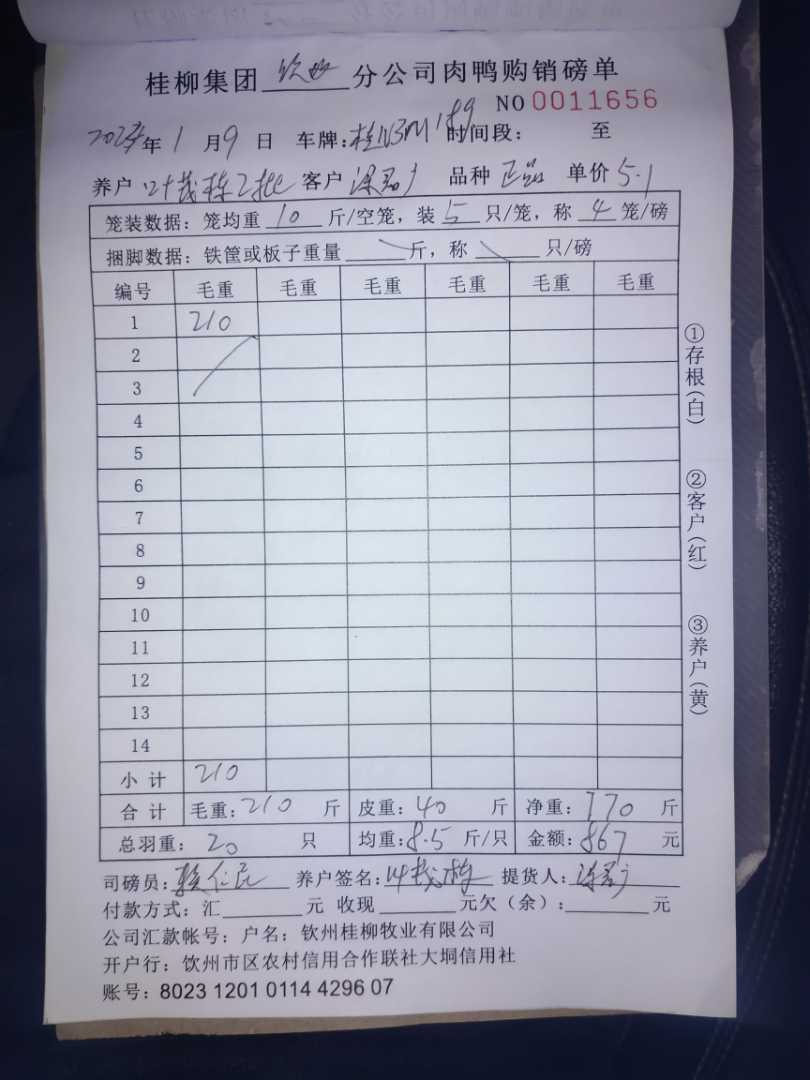 桂柳集团 钦州 分公司肉鸭购销磅单
NO 0011656
年 1 月 9 日 车牌: 时间段: 至
养户 叶茂栋2批 客户 品种 正品 单价 5.1
笼装数据：笼均重 10 斤/空笼，装 5 只/笼，称 4 笼/磅
捆脚数据：铁筐或板子重量 斤，称 只/磅
编号 毛重 毛重 毛重 毛重 毛重 毛重
1 210
2
3
4
5
6
7
8
9
10
11
12
13
14
小计 210
合计 毛重: 210 斤 皮重: 40 斤 净重: 170 斤
总羽重: 20 只 均重: 8.5 斤/只 金额: 867 元
司磅员: 养户签名: 叶茂栋 提货人:
付款方式：汇 元 收现 元欠（余）: 元
公司汇款帐号：户名：钦州桂柳牧业有限公司
开户行：钦州市区农村信用合作联社大垌信用社
账号：8023 1201 0114 4296 07
①存根(白)
②客户(红)
③养户(黄)